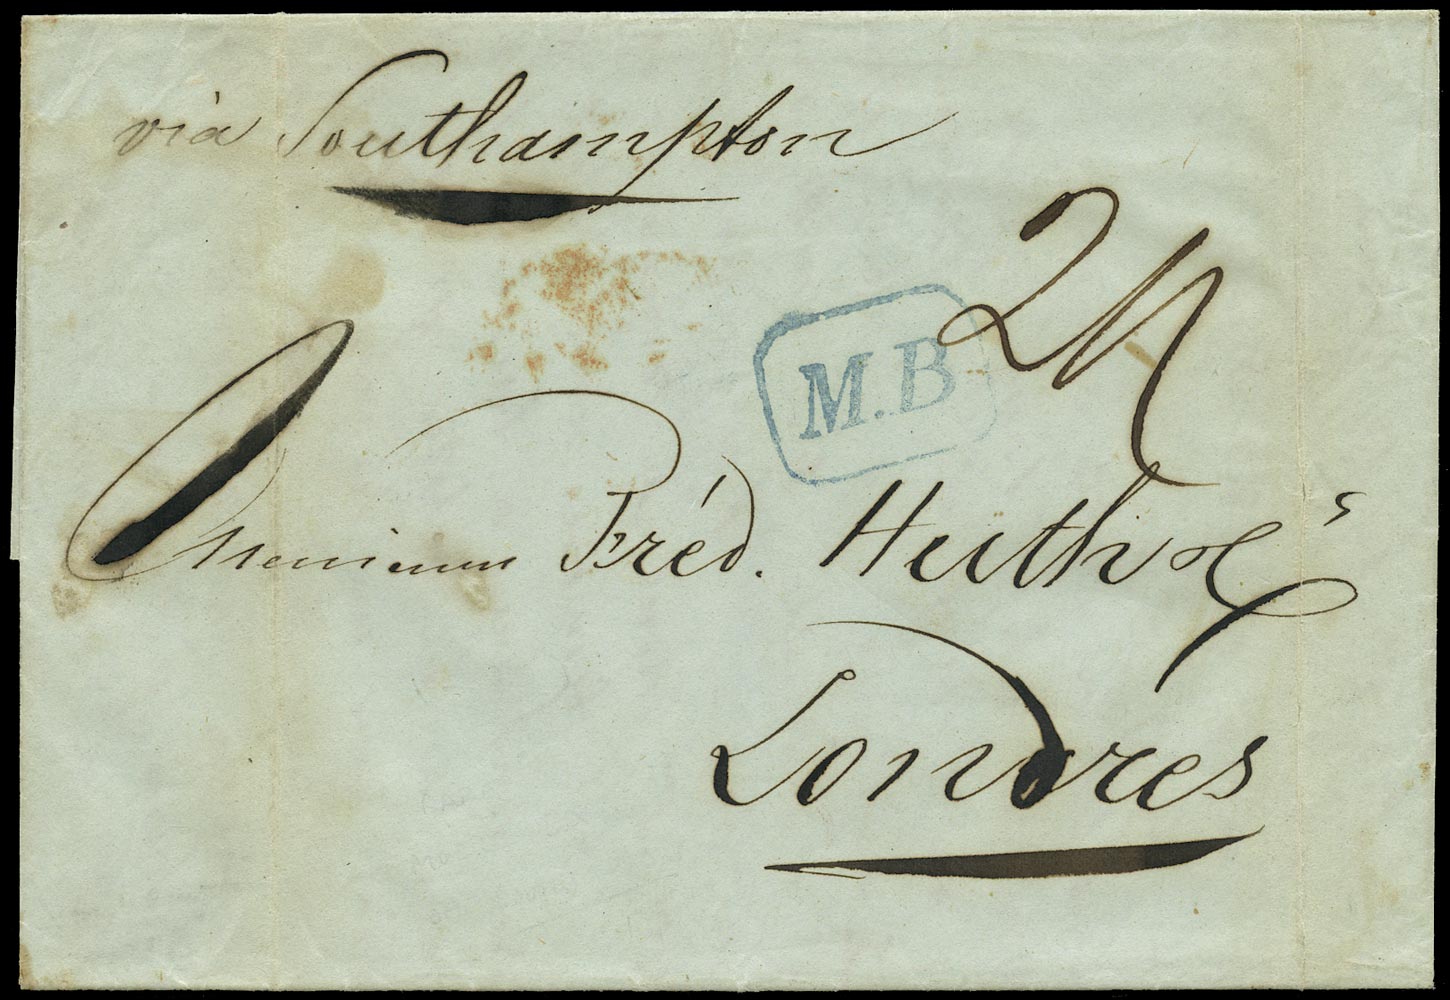 viá Southampton
2/1
M.B
Messieurs Fréd. Huth & Cs
Londres